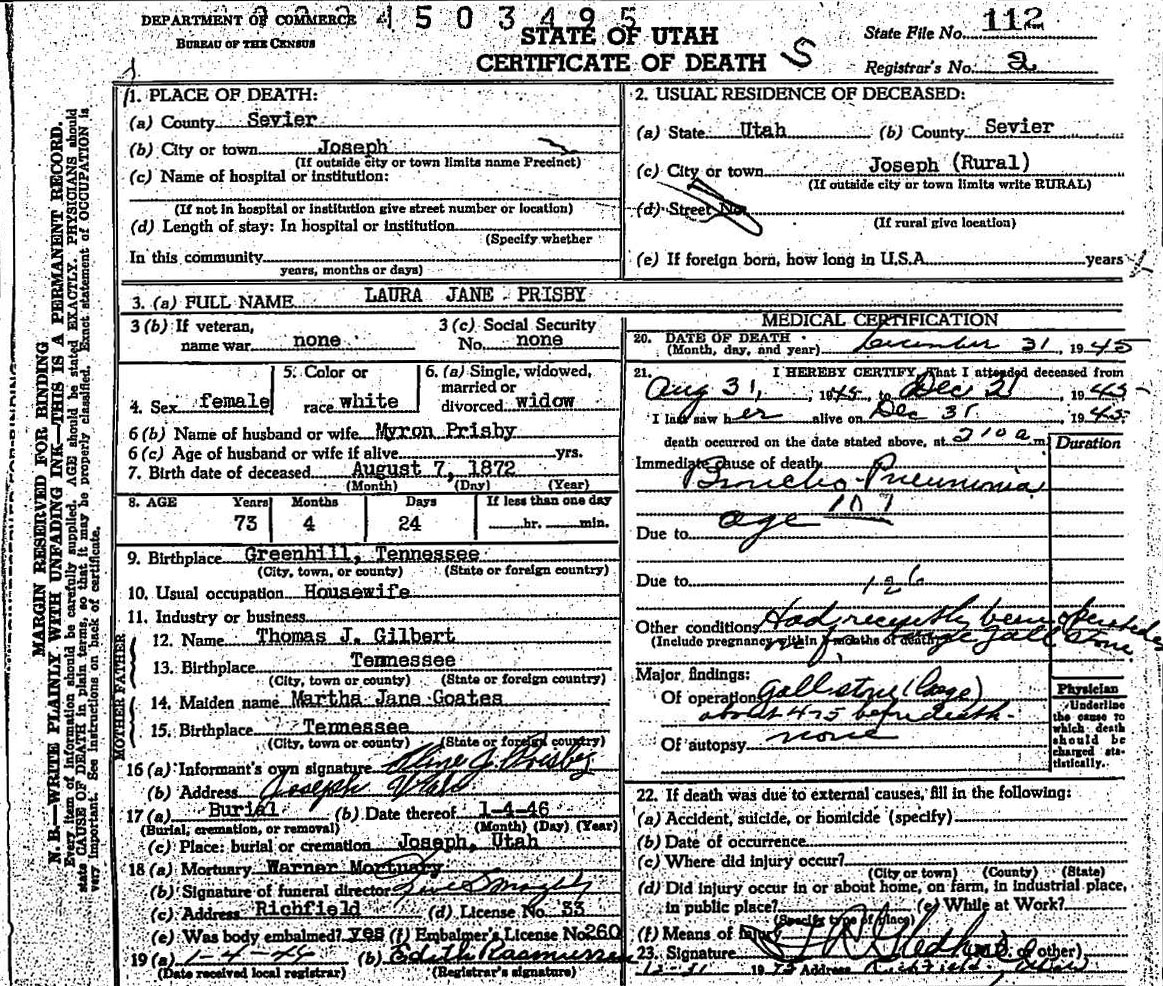 DEPARTMENT OF COMMERCE
BUREAU OF THE CENSUS
1503495
STATE OF UTAH
CERTIFICATE OF DEATH
S
State File No. 112
Registrar's No. 2
MARGIN RESERVED FOR BINDING
N. B.—WRITE PLAINLY, WITH UNFADING INK—THIS IS A PERMANENT RECORD.
Every item of information should be carefully supplied. AGE should be stated EXACTLY. PHYSICIANS should
state CAUSE OF DEATH in plain terms, so that it may be properly classified. Exact statement of OCCUPATION is
very important. See instructions on back of certificate.
1. PLACE OF DEATH:
(a) County Sevier
(b) City or town Joseph
(If outside city or town limits name Precinct)
(c) Name of hospital or institution:
(If not in hospital or institution give street number or location)
(d) Length of stay: In hospital or institution
(Specify whether
In this community
years, months or days)
2. USUAL RESIDENCE OF DECEASED:
(a) State Utah (b) County Sevier
(c) City or town Joseph (Rural)
(If outside city or town limits write RURAL)
(d) Street No.
(If rural give location)
(e) If foreign born, how long in U.S.A. years
3. (a) FULL NAME LAURA JANE PRISBY
3 (b) If veteran, name war none
3 (c) Social Security No. none
4. Sex female
5. Color or race white
6. (a) Single, widowed, married or divorced widow
6 (b) Name of husband or wife Myron Prisby
6 (c) Age of husband or wife if alive yrs.
7. Birth date of deceased August 7, 1872
(Month) (Day) (Year)
8. AGE Years Months Days If less than one day
73 4 24 hr. min.
9. Birthplace Greenhill, Tennessee
(City, town, or county) (State or foreign country)
10. Usual occupation Housewife
11. Industry or business
FATHER
12. Name Thomas J. Gilbert
13. Birthplace Tennessee
(City, town or county) (State or foreign country)
MOTHER
14. Maiden name Martha Jane Coates
15. Birthplace Tennessee
(City, town or county) (State or foreign country)
16 (a) Informant's own signature Prisby
(b) Address Joseph Utah
17 (a) Burial (b) Date thereof 1-4-46
(Burial, cremation, or removal) (Month) (Day) (Year)
(c) Place: burial or cremation Joseph, Utah
18 (a) Mortuary Warner Mortuary
(b) Signature of funeral director
(c) Address Richfield (d) License No. 33
(e) Was body embalmed? yes (f) Embalmer's License No 260
19 (a) 1-4-46 (b) Edith Rasmussen
(Date received local registrar) (Registrar's signature)
MEDICAL CERTIFICATION
20. DATE OF DEATH
(Month, day, and year) December 31, 1945
21. I HEREBY CERTIFY, That I attended deceased from
Aug 31, 1945, to Dec 21, 1945
I last saw her alive on Dec 31 1945;
death occurred on the date stated above, at 210 a m.
Duration
Immediate cause of death
Broncho-Pneumonia
107
Due to age
Due to
126
Other conditions Had recently been operated
(Include pregnancy within 3 months of death) on for large gall stone
Major findings:
Of operation Gall stone (large)
about 4-5 before death-
Of autopsy none
Physician
Underline the cause to which death should be charged statistically.
22. If death was due to external causes, fill in the following:
(a) Accident, suicide, or homicide (specify)
(b) Date of occurrence
(c) Where did injury occur?
(City or town) (County) (State)
(d) Did injury occur in or about home, on farm, in industrial place,
in public place? (e) While at Work?
(Specify type of place)
(f) Means of injury
23. Signature (M.D. or other)
12-31 1945 Address Richfield, Utah